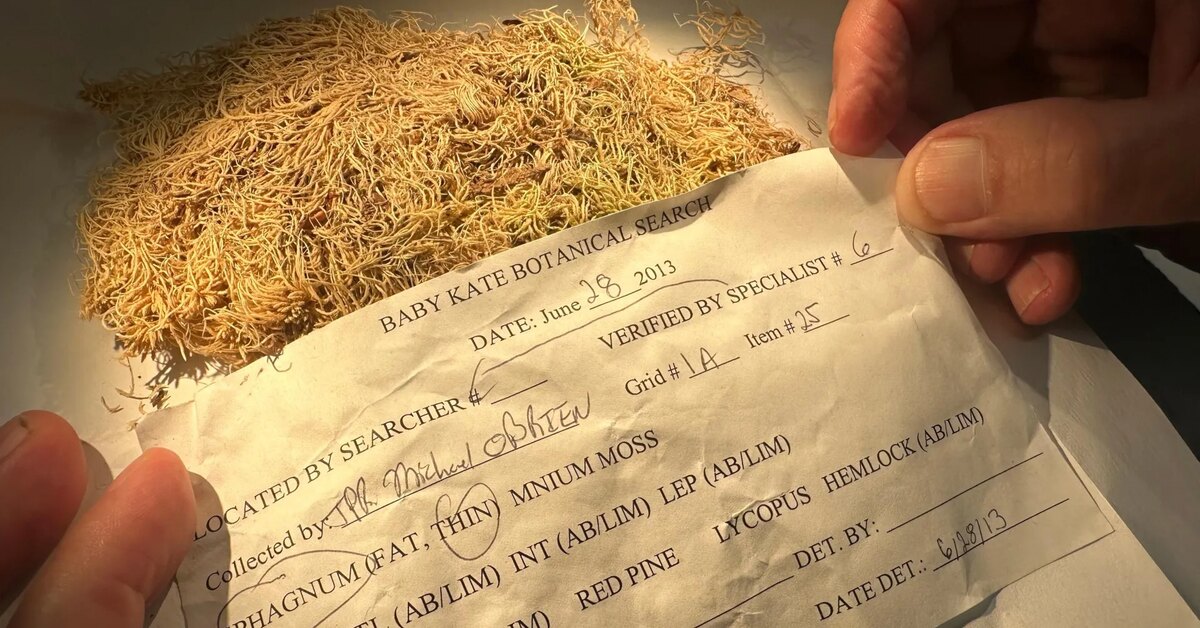 BABY KATE BOTANICAL SEARCH
DATE: June 28 2013
LOCATED BY SEARCHER # VERIFIED BY SPECIALIST # 6
Collected by: TPR. Michael OBRIEN Grid # 1A Item # 25
PHAGNUM (FAT, THIN) MNIUM MOSS
(AB/LIM) INT (AB/LIM) LEP (AB/LIM)
RED PINE LYCOPUS HEMLOCK (AB/LIM)
DET. BY:
DATE DET.: 6/28/13